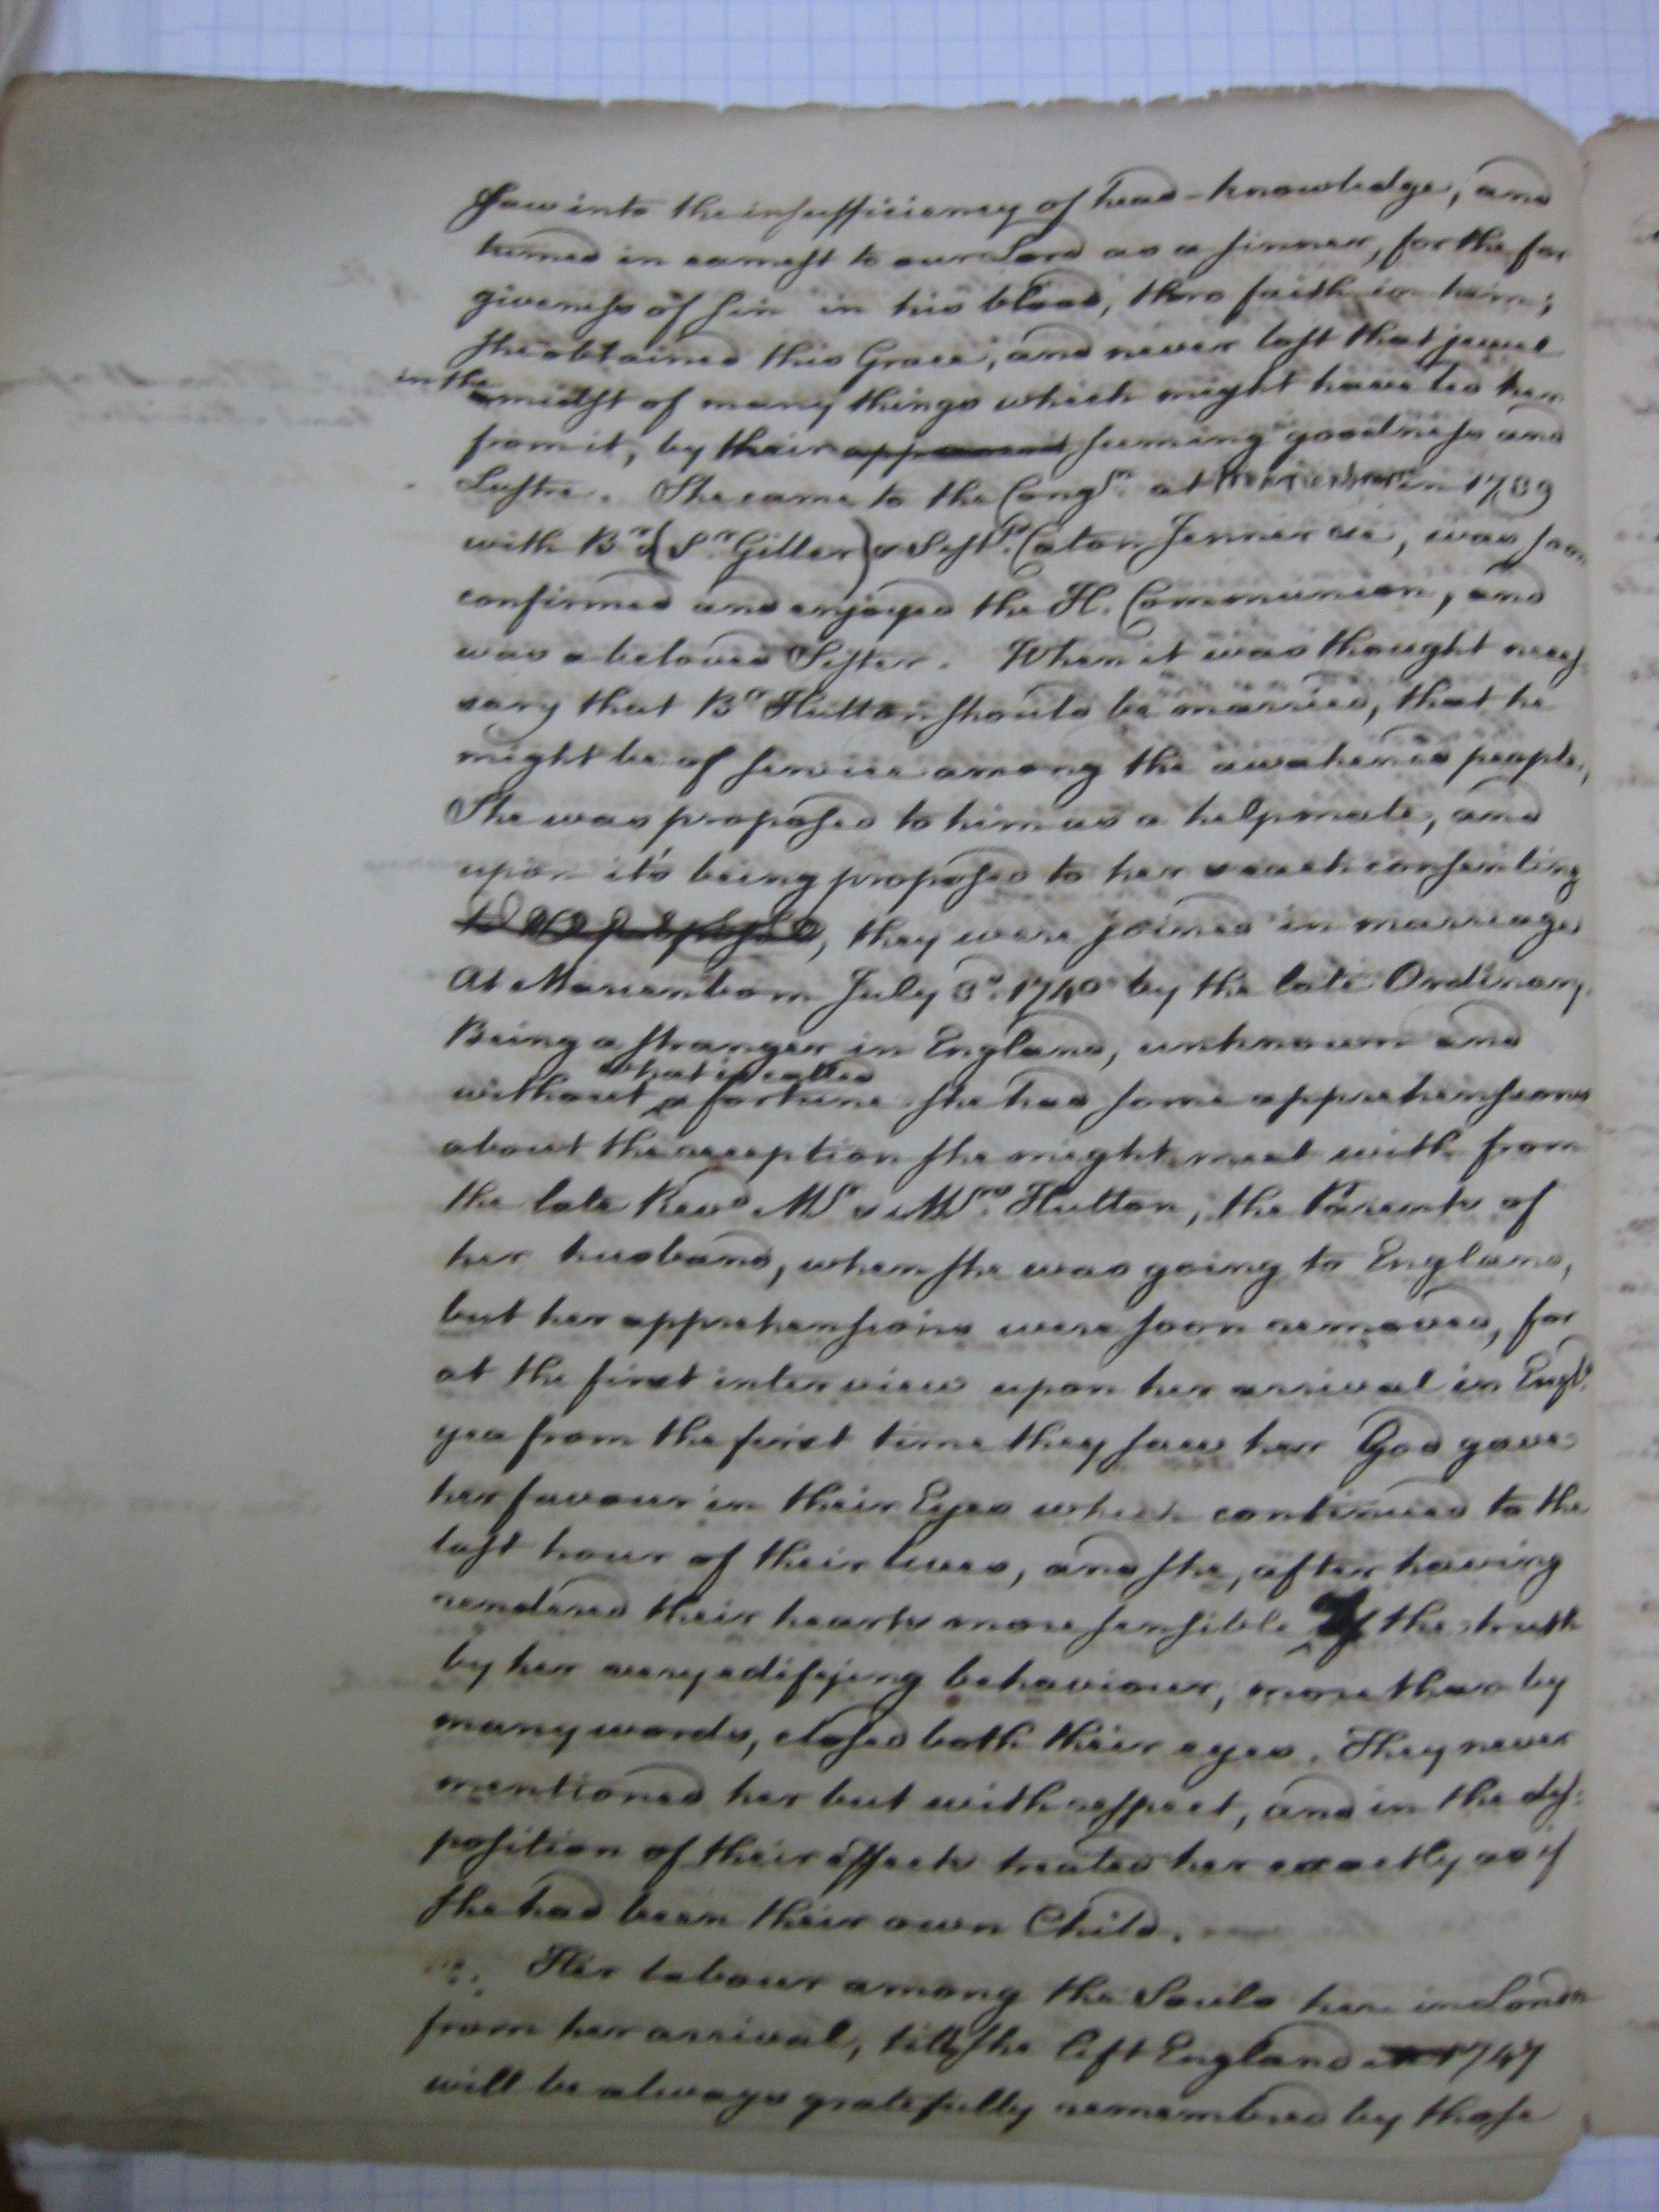 saw into the insufficiency of head-knowledge, and
turned in earnest to our Lord as a sinner, for the for
giveness of sin in his blood, thro faith in him;
she obtained this Grace, and never lost that jewel
in the midst of many things which might have led her
from it, by their apparent seeming goodness and
Lustre. She came to the Congn. at in 1739
with Br. (Sr. Giller) & Sistr. Caton Jenner &c, was soon
confirmed and enjoyed the H. Communion, and
was a beloved Sister. When it was thought neces
sary that Br Hutton should be married, that he
might be of service among the awakened people,
She was proposed to him as a helpmate, and
upon it's being proposed to her & each consenting
, they were joined in marriage
at Marienborn July 3d. 1740 by the late Ordinary.
Being a stranger in England, unknown and
without what is called a fortune she had some apprehensions
about the reception she might meet with from
the late Revd Mr & Mrs. Hutton, the Parents of
her husband, when she was going to England,
but her apprehensions were soon removed, for
at the first interview upon her arrival in Engld.
yea from the first time they saw her God gave
her favour in their Eyes which continued to the
last hour of their lives, and she, after having
rendered their hearts more sensible of the truth
by her very edifying behaviour, more than by
many words, closed both their eyes. They never
mentioned her but with respect, and in the dis:
position of their effects treated her exactly as if
she had been their own Child.
Her labour among the Souls here in London
from her arrival, till she left England in 1747
will be always gratefully remembred by those